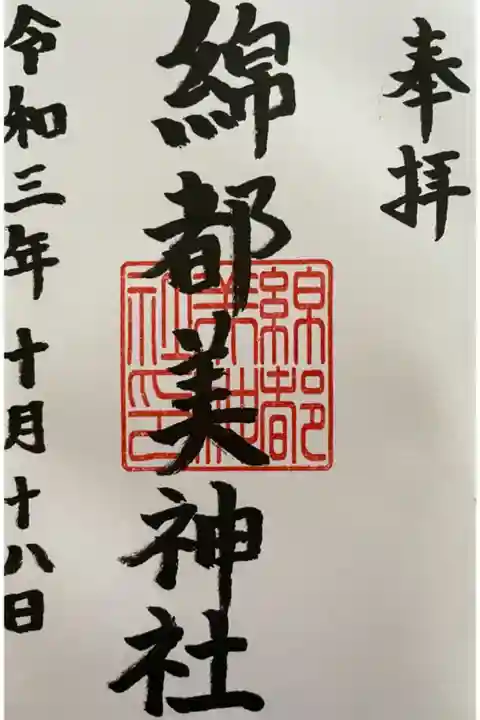 奉拝
綿都美神社
綿都
美神
社印
令和三年十月十八日